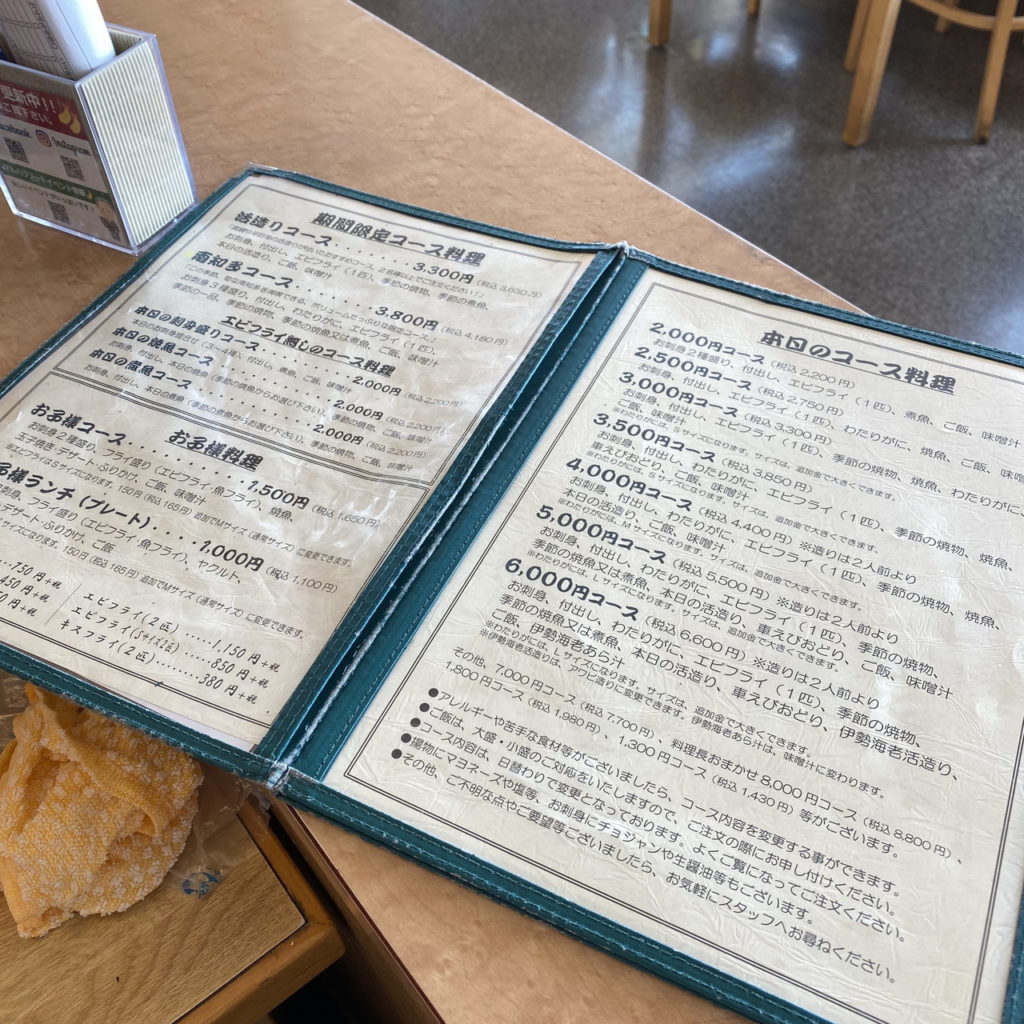 更新中!!
facebook
Instagram
期間限定コース料理
活造りコース・・・・・・・3,300円(税込 3,630円)
お刺身、付出し、エビフライ(1匹)、季節の焼物、季節の煮魚、
本日の活造り、ご飯、味噌汁
南知多コース・・・・・・・3,800円(税込 4,180円)
お刺身3種盛り、付出し、わたりがに、エビフライ(1匹)、
季節の一品、季節の焼物、季節の焼魚又は煮魚、ご飯、味噌汁
エビフライ無しのコース料理
本日の刺身盛りコース・・・・・・2,000円(税込 2,200円)
本日のお刺身盛合せ(3〜4種)、付出し、煮魚、ご飯、味噌汁
本日の焼魚コース・・・・・・2,000円(税込 2,200円)
お刺身、付出し、本日の焼魚(季節の焼魚からお選び下さい)、季節の焼物、ご飯、味噌汁
本日の煮魚コース・・・・・・2,000円(税込 2,200円)
お刺身、付出し、本日の煮魚(季節の煮魚からお選び下さい)、季節の焼物、ご飯、味噌汁
お子様料理
お子様コース・・・・・・・1,500円(税込 1,650円)
お刺身2種盛り、フライ盛り(エビフライ・魚フライ)、焼魚、
玉子焼き・デザート・ふりかけ、ご飯、味噌汁
※エビフライはSサイズになります。150円(税込 165円)追加でMサイズ(通常サイズ)に変更できます。
子様ランチ(プレート)・・・・1,000円(税込 1,100円)
刺身、フライ盛り(エビフライ・魚フライ)、ヤクルト、
デザート・ふりかけ、ご飯
サイズになります。150円(税込 165円)追加でMサイズ(通常サイズ)に変更できます。
...150円+税
450円+税
エビフライ(2匹)......1,150円+税
エビフライ(S+1大2匹)......850円+税
キスフライ(2匹)......380円+税
本日のコース料理
2,000円コース(税込 2,200円)
お刺身2種盛り、付出し、エビフライ(1匹)、煮魚、ご飯、味噌汁
2,500円コース(税込 2,750円)
お刺身、付出し、エビフライ(1匹)、わたりがに、焼魚、ご飯、味噌
3,000円コース(税込 3,300円)
お刺身、付出し、エビフライ(1匹)、季節の焼物、焼魚、わたりがに、
ご飯、味噌汁
※わたりがには、Sサイズになります。サイズは、追加金で大きくできます。
3,500円コース(税込 3,850円)
お刺身、付出し、わたりがに、エビフライ(1匹)、季節の焼物、焼魚、
車えびおどり、ご飯、味噌汁
※わたりがには、Sサイズになります。サイズは、追加金で大きくできます。
4,000円コース(税込 4,400円)※造りは2人前より
お刺身、付出し、わたりがに、エビフライ(1匹)、季節の焼物、焼魚、
本日の活造り、ご飯、味噌汁
※わたりがには、Mサイズになります。サイズは、追加金で大きくできます。
5,000円コース(税込 5,500円)※造りは2人前より
お刺身、付出し、わたりがに、エビフライ(1匹)、季節の焼物、
季節の焼魚又は煮魚、本日の活造り、車えびおどり、ご飯、味噌汁
※わたりがには、Lサイズになります。サイズは、追加金で大きくできます。
6,000円コース(税込 6,600円)※造りは2人前より
お刺身、付出し、わたりがに、エビフライ(1匹)、季節の焼物、
季節の焼魚又は煮魚、本日の活造り、車えびおどり、伊勢海老活造り、
ご飯、伊勢海老あら汁
※わたりがには、Lサイズになります。サイズは、追加金で大きくできます。
※伊勢海老活造りは、アワビ造りに変更できます。伊勢海老あら汁は、味噌汁に変わります。
その他、7,000円コース(税込 7,700円)、料理長おまかせ 8,000円コース(税込 8,800円)、
1,800円コース(税込 1,980円)、1,300円コース(税込 1,430円)等がございます。
●アレルギーや苦手な食材等がございましたら、コース内容を変更する事ができます。
●ご飯は、大盛・小盛のご対応をいたしますので、ご注文の際にお申し付けください。
●コース内容は、日替わりで変更となっております。よくご覧になってご注文ください。
●揚物にマヨネーズや塩等、お刺身にチョジャンや生醤油等もございます。
●その他、ご不明な点やご要望等ございましたら、お気軽にスタッフへお尋ねください。